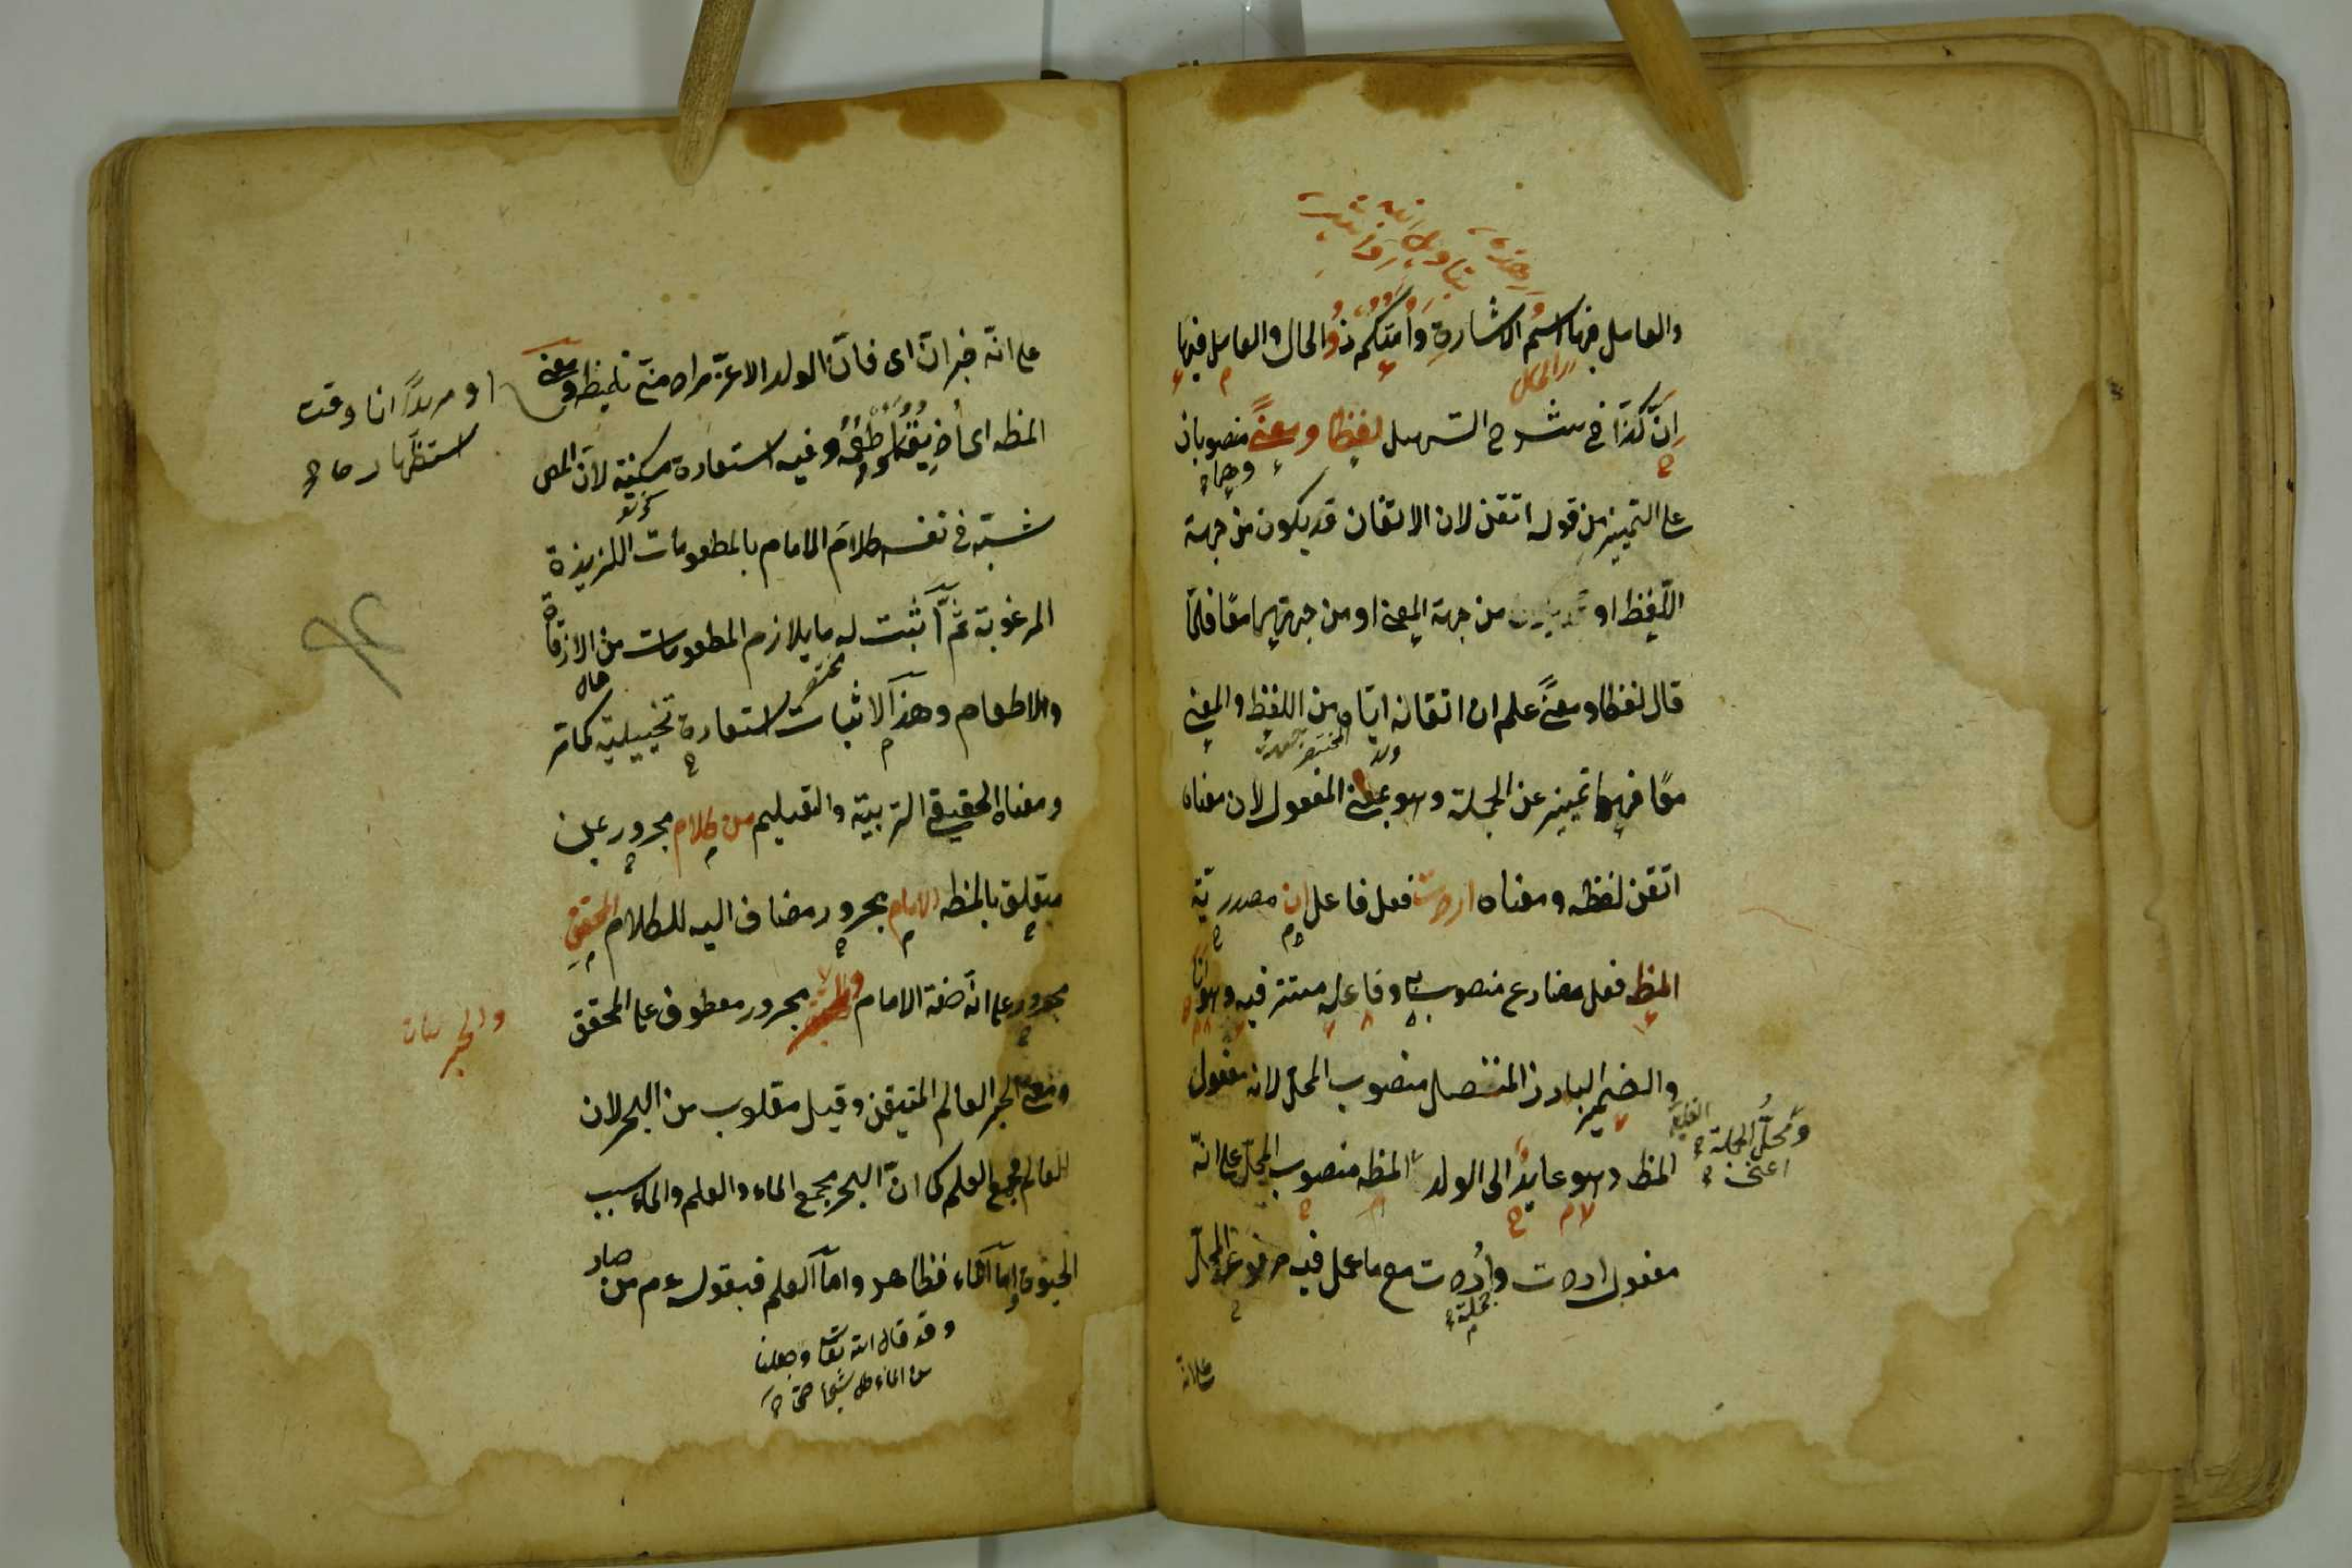 والعامل فيها اسم الاشارة وامتكم ذو الحال والعامل فيها
ان كذا في شرح التسهيل لفظا ومعنى منصوبان
على التميز من قوله اتقن لان الاتقان قد يكون من جهة
اللفظ او من جهة المعنى او من جهتيهما معًا فلمّا
قال لفظا ومعنى علم ان اتقانه ايّاه من اللفظ والمعنى
معًا فهما تميز عن الجملة وهو بمعنى المفعول لان معناه
اتقن لفظه ومعناه اردت فعل فاعل ان مصدريّة
المظ فعل مضارع منصوب به وفاعله مستتر فيه وهو انا
والضمير البارز المتصل منصوب المحل لانه مفعول
ومحلّ الجملة الفعلية
اعنى
المظ وهو عايد الى الولد المظه منصوب المحل على انّه
مفعول اردت واردت مع ما عمل فيه مرفوع المحلّ
جملة
على انه
على انّه خبر ان اى فانّ الولد الاعزّ مراد منّى تلميظ ومعنى
او مريدًا انا وقت
استظهار
المظه اى اذيقه واطعمه وفيه استعارة مكنية لانّ المص
شبّه في نفسه كلام الامام بالمطعومات اللذيذة
المرغوبة ثمّ اثبت له ما يلازم المطعومات من الاذاقة
والاطعام وهذا الاثبات استعارة تخييلية كما مرّ
ومعناه الحقيقي التربية والتعليم من كلام مجرور بمن
متعلق بالمظه الامام مجرور مضاف اليه للكلام المحقق
مجرور على انّه صفة الامام والحبر مجرور معطوف على المحقق
والحبر
ومعنى الحبر العالم المتيقن وقيل مقلوب من البحر لان
العالم مجمع العلم كما انّ البحر مجمع الماء والعلم والماء سبب
الحيوة امّا الماء فظاهر وامّا العلم فبقوله عم من صار
وقد قال الله تعا وجعلنا
من الماء كل شئ حى